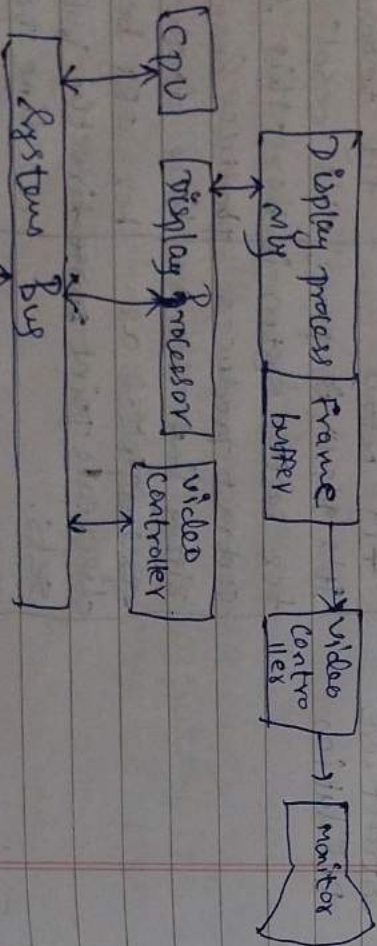 Display process
My
Frame
buffer
video
Contro
ller
monitor
CPU
Display Processor
video
Controller
System Bus